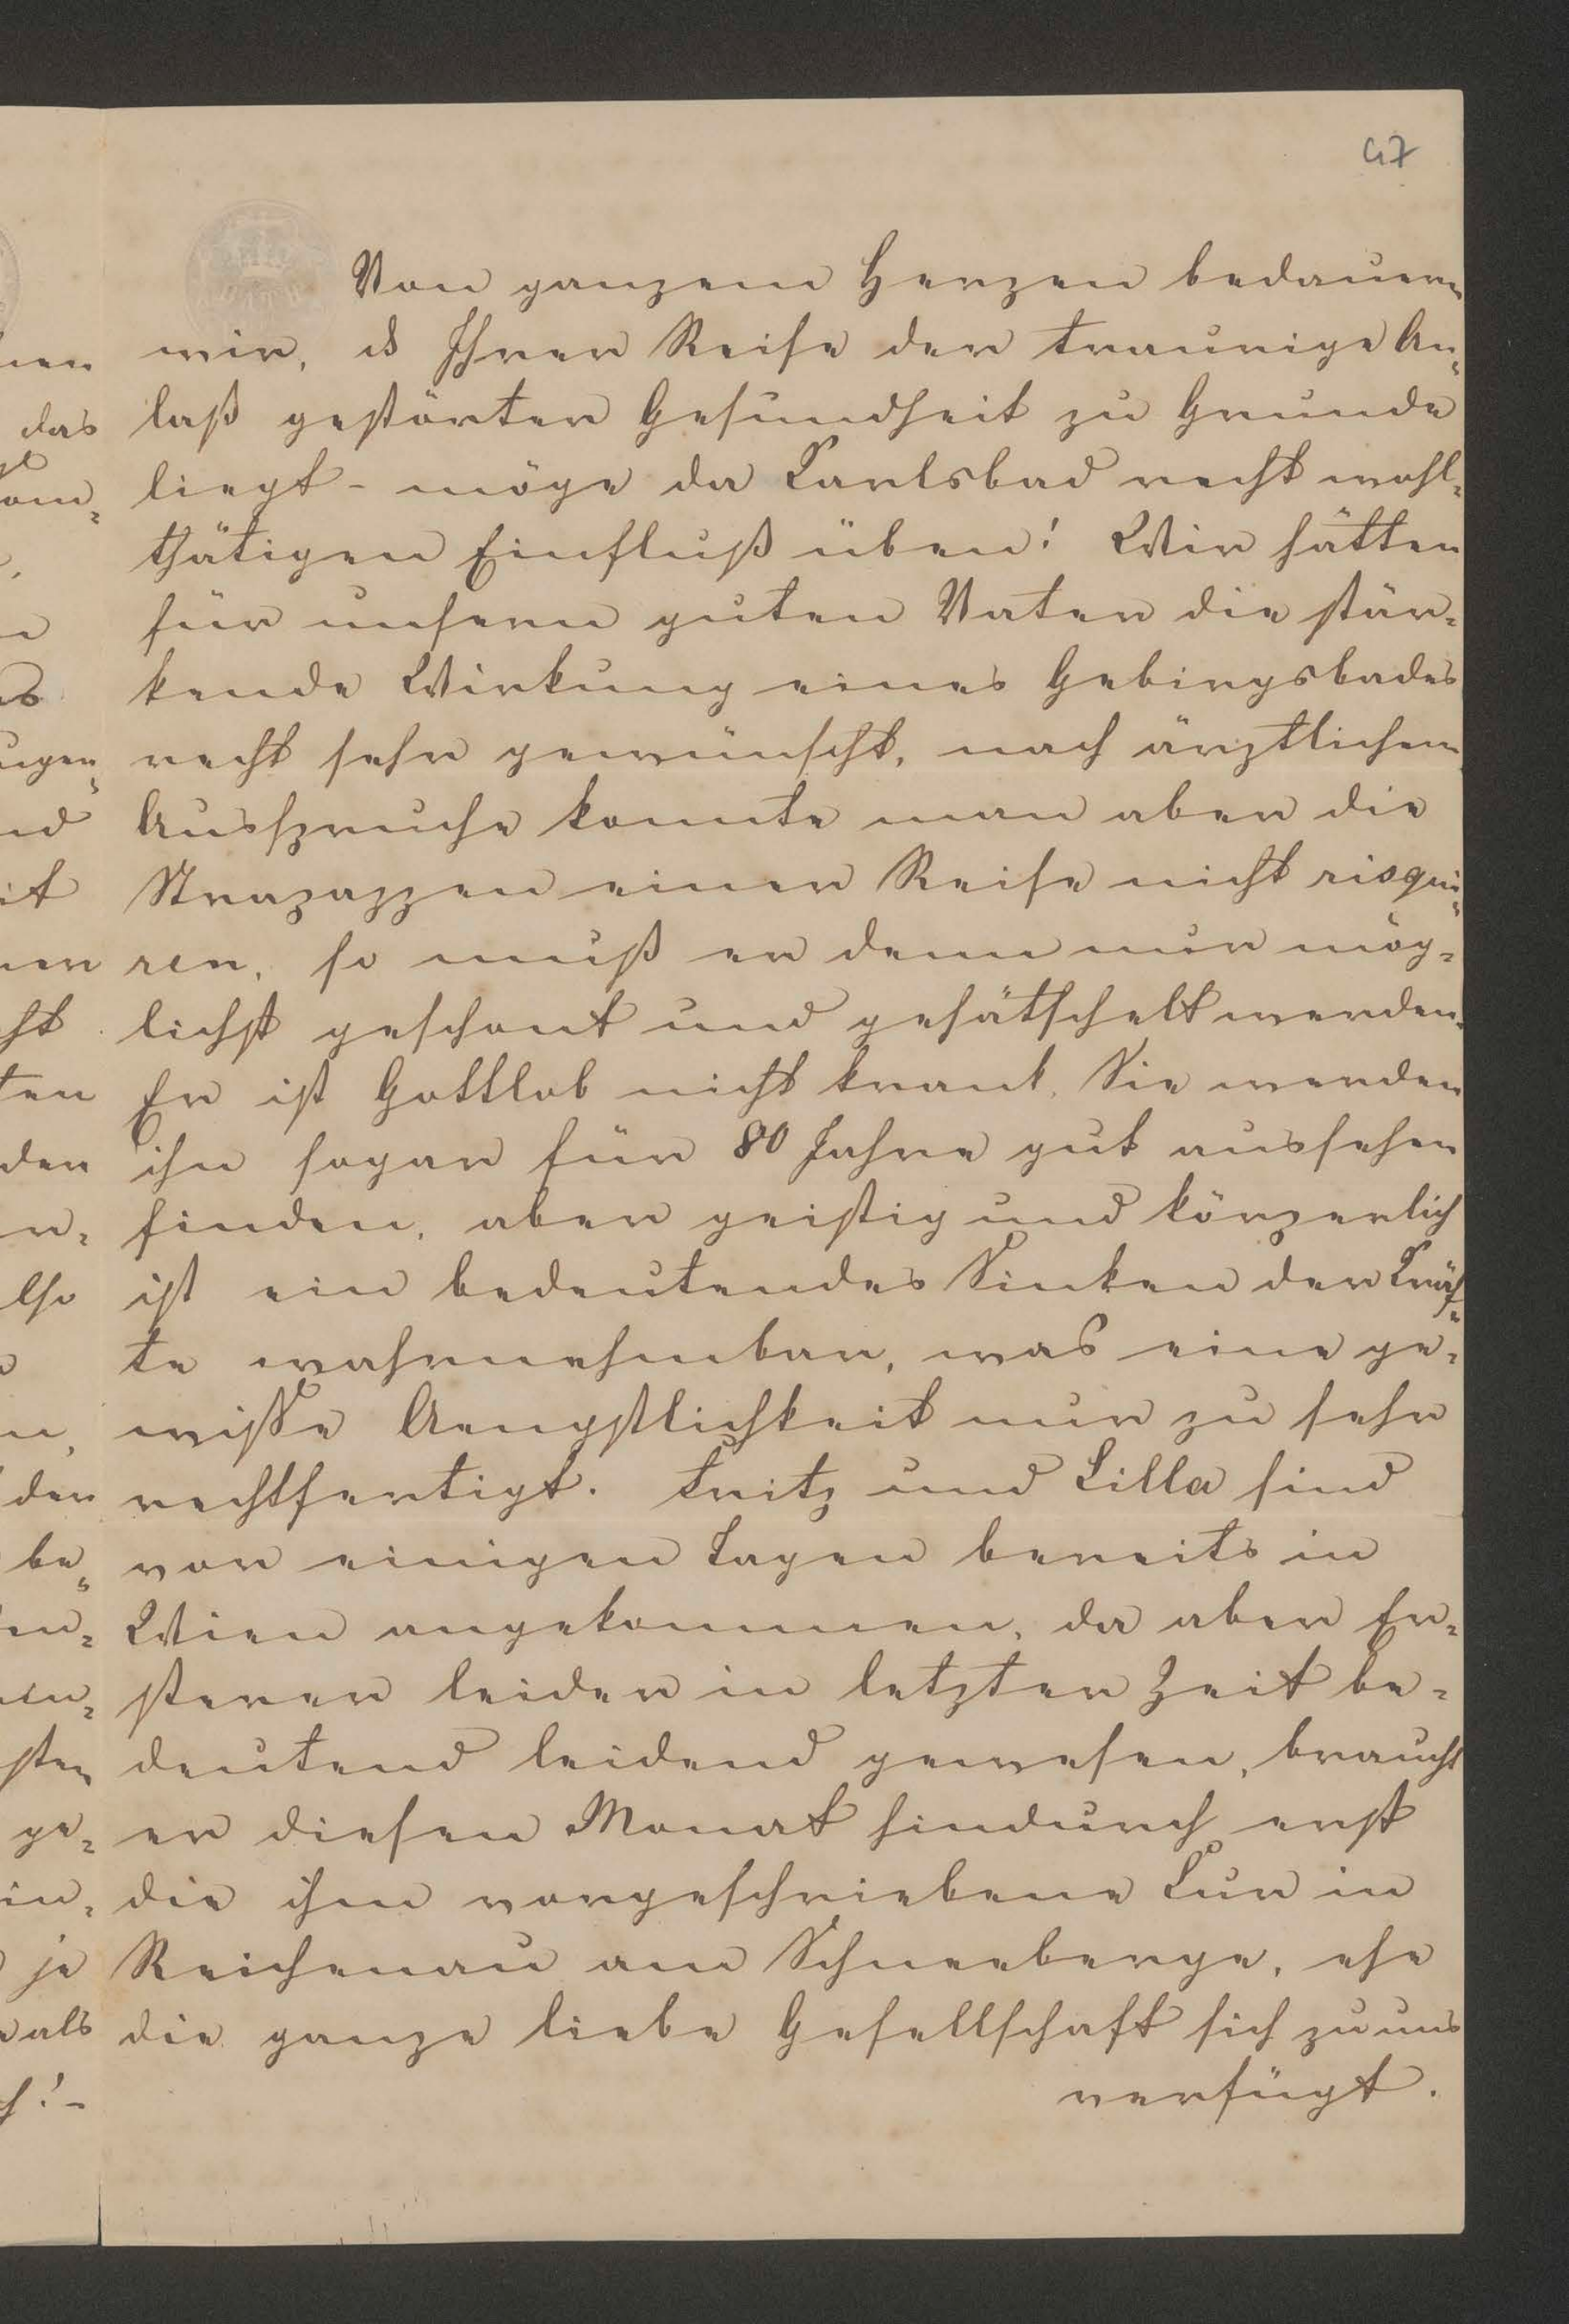 47
Von ganzem Herzen bedauern
wir, Ihrer Reise der traurige An⸗
laß gestörter Gesundheit zu Grunde
liegt – möge da Carlsbad recht wohl⸗
thätigen Einfluß üben! Wir hätten
für unsern guten Vater die stär⸗
kende Wirkung eines Gebirgsbades
recht sehr gewünscht, nach ärztlichem
Ausspruche konnte man aber die
Strapazzen einer Reise nicht risqui⸗
ren, so muß er denn nur mög⸗
lichst geschont und gehätschelt werden.
Er ist Gottlob nicht krank, Sie werden
ihn sogar für 80 Jahre gut aussehen
finden, aber geistig und körperlich
ist ein bedeutendes Sinken der Kräf⸗
te wahrnehmbar, was eine ge⸗
wisse Aengstlichkeit nur zu sehr
rechtfertigt. Fritz und Lilla sind
vor einigen Tagen bereits in
Wien angekommen, da aber Er⸗
sterer leider in letzter Zeit be⸗
deutend leidend gewesen, braucht
er diesen Monat hindurch erst
die ihm vorgeschriebene Cur in
Reichenau am Schneeberge, ehe
die ganze liebe Gesellschaft sich zu uns
verfügt.